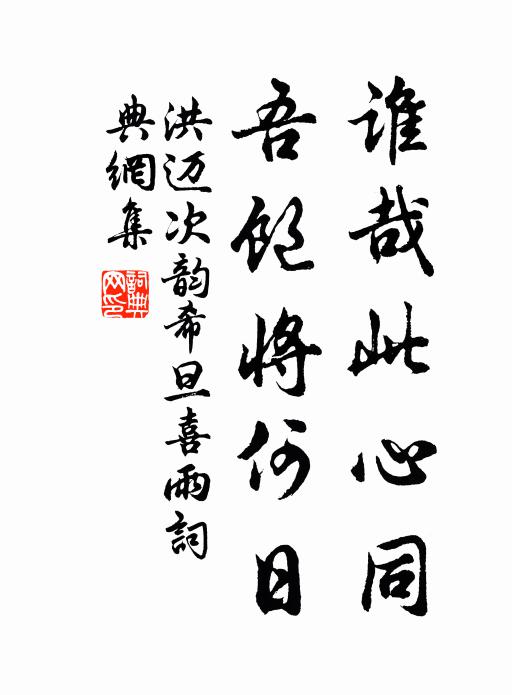 谁哉此心同
吾饱将何日
洪迈次韵希旦喜雨詞
典網集
詞典
网印